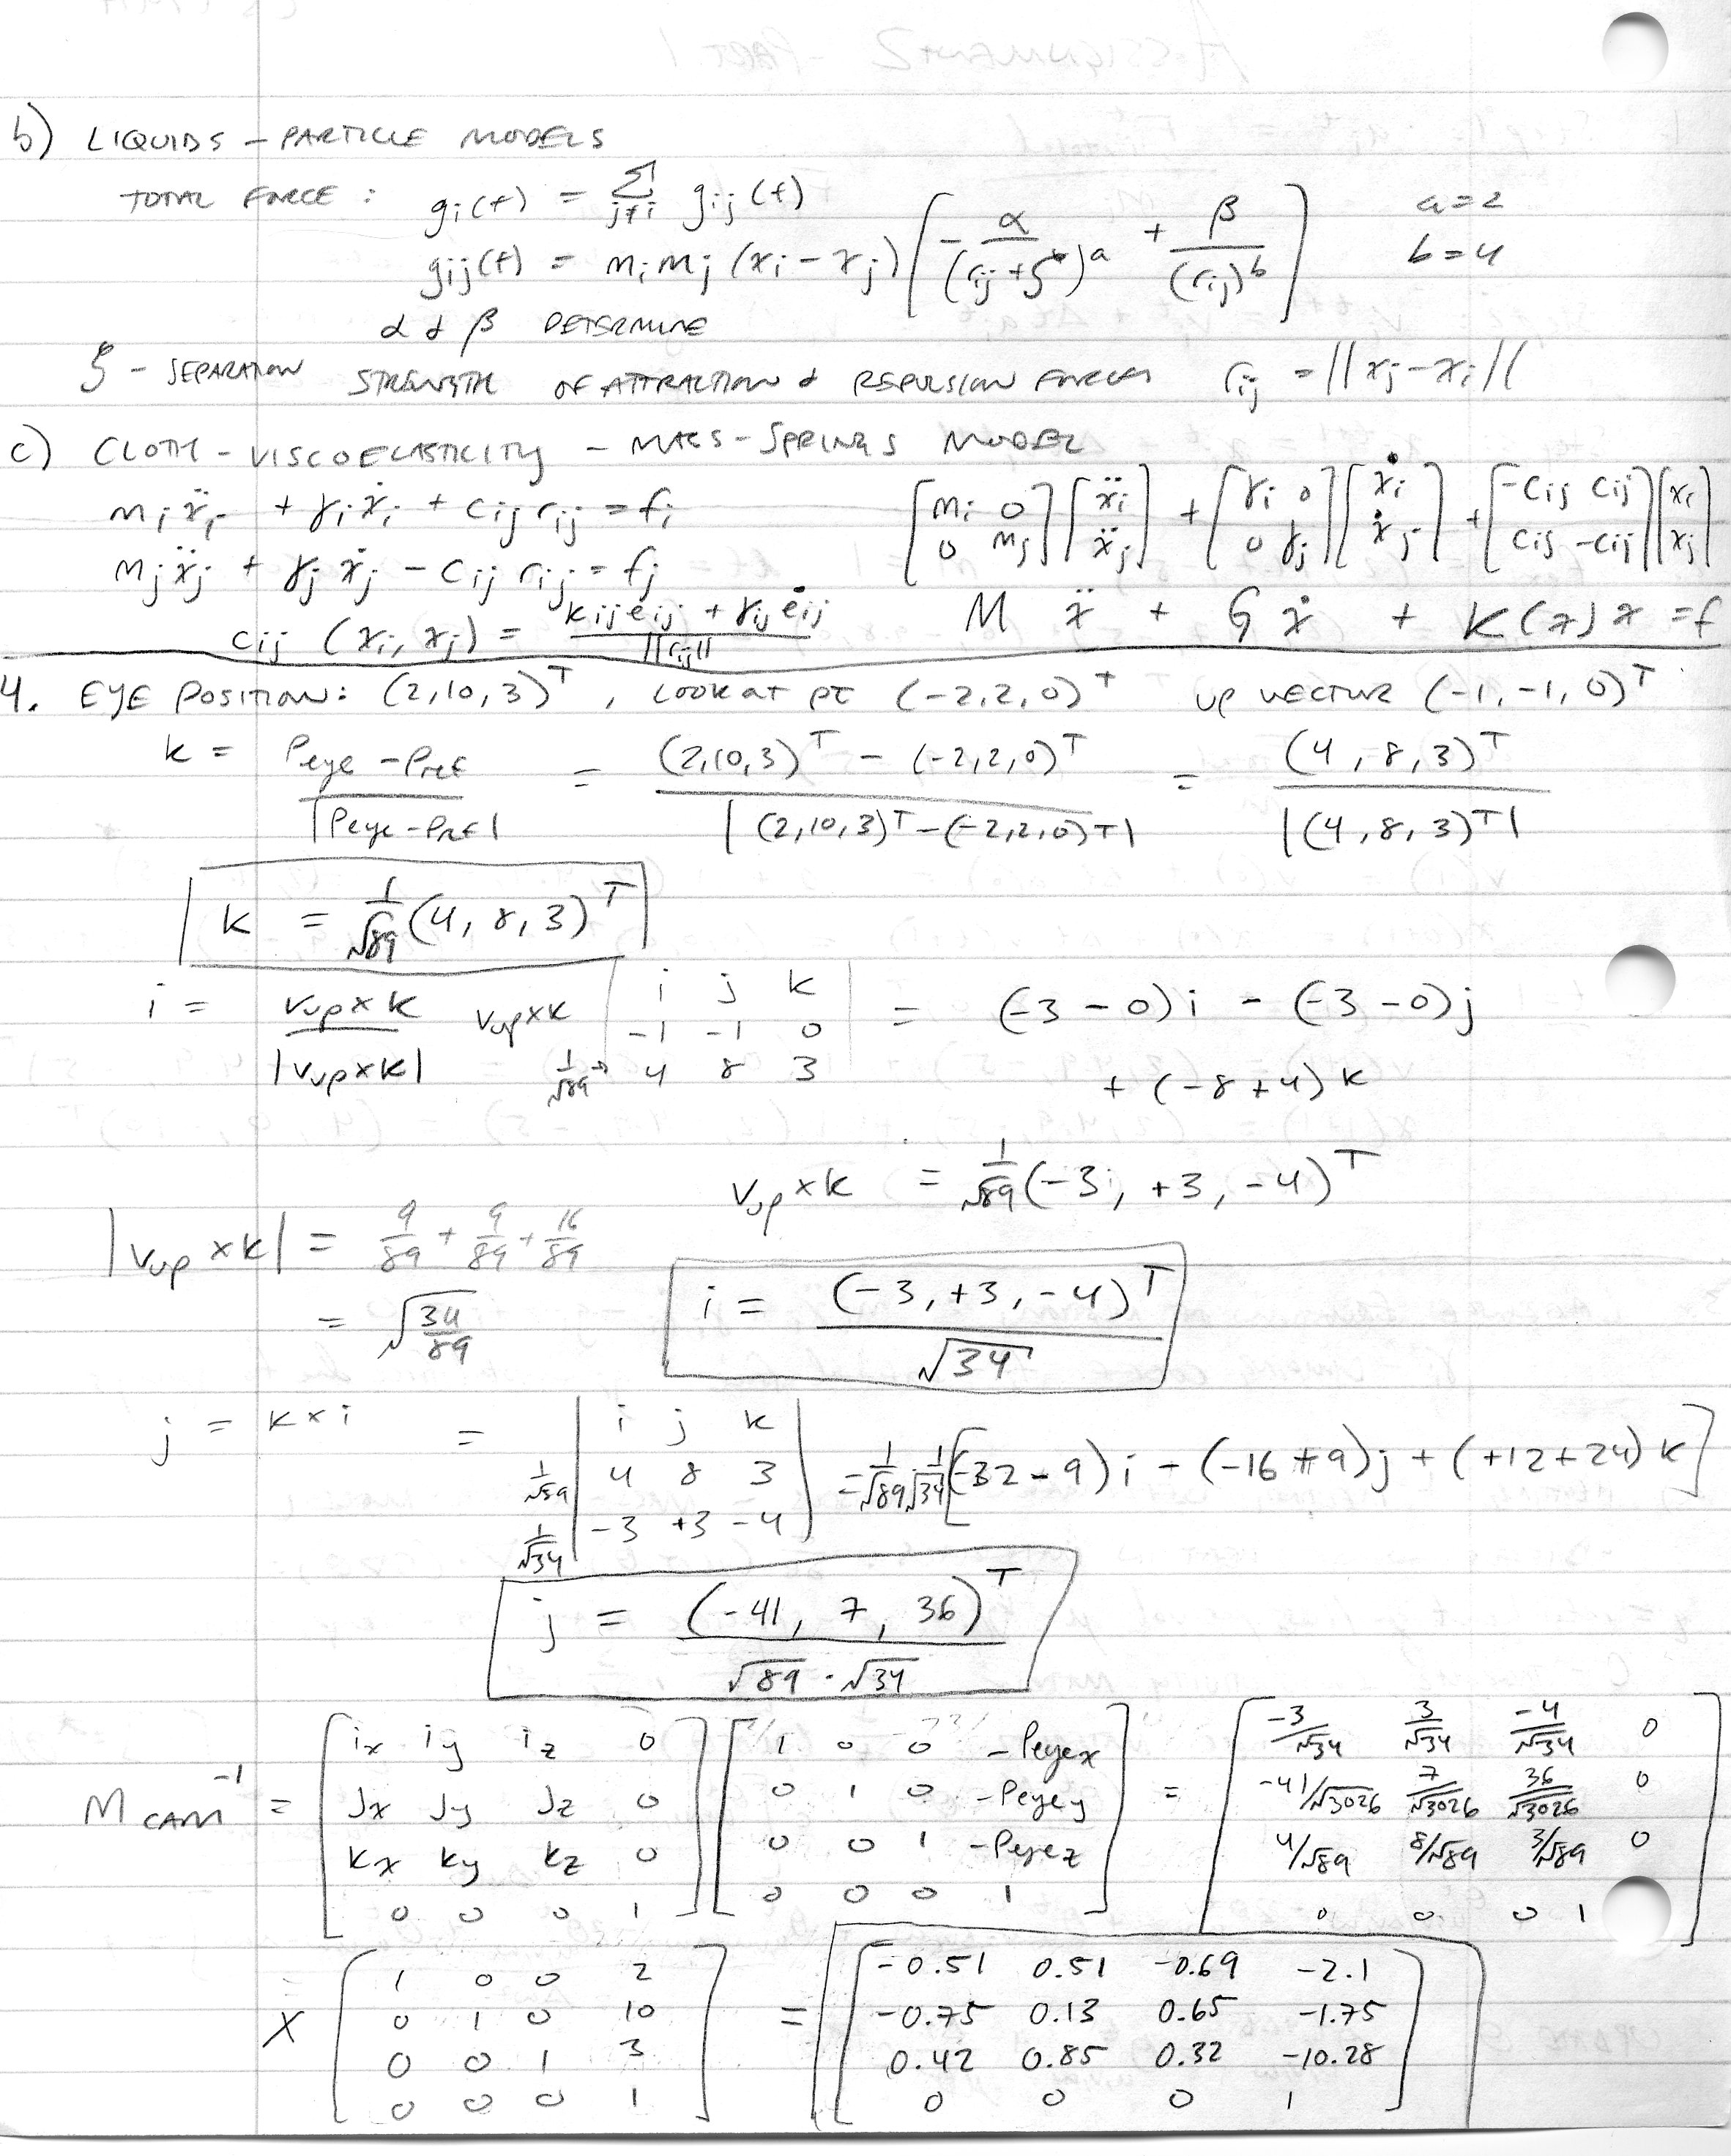 b) LIQUIDS - PARTICLE MODELS
TOTAL FORCE : gi(t) = Σ j≠i gij(t)
gij(t) = mi mj (xi - xj) [ -α/(rij + ζ)^a + β/(rij)^b ] a=2 b=4
α & β DETERMINE
ζ - SEPARATION STRENGTH OF ATTRACTION & REPULSION FORCES rij = ||xj - xi||
c) CLOTH - VISCOELASTICITY - MASS-SPRINGS MODEL
mi ẍi + γi ẋi + cij rij = fi [mi 0; 0 mj] [ẍi; ẍj] + [γi 0; 0 γj] [ẋi; ẋj] + [-cij cij; cij -cij] [xi; xj]
mj ẍj + γj ẋj - cij rij = fj
cij (xi, xj) = (kij eij + γij ėij) / ||rij|| M ẍ + G ẋ + K(x) x = f
4. EYE POSITION: (2,10,3)^T , LOOK AT PT (-2,2,0)^T UP VECTOR (-1,-1,0)^T
k = (Peye - Pref) / |Peye - Pref| = ((2,10,3)^T - (-2,2,0)^T) / |(2,10,3)^T - (-2,2,0)^T| = (4,8,3)^T / |(4,8,3)^T|
k = 1/√89 (4, 8, 3)^T
i = vup × k / |vup × k| vup × k | i j k; -1 -1 0; 1/√89 → 4 8 3 | = (-3 - 0) i - (-3 - 0) j
+ (-8 + 4) k
vup × k = 1/√89 (-3, +3, -4)^T
|vup × k| = 9/89 + 9/89 + 16/89
= √(34/89) i = (-3, +3, -4)^T / √34
j = k × i = | i j k; 1/√89 4 8 3; 1/√34 -3 +3 -4 | = 1/√89 · 1/√34 [(-32 - 9) i - (-16 + 9) j + (+12 + 24) k]
j = (-41, 7, 36)^T / √89 · √34
M CAM^-1 = [ix iy iz 0; jx jy jz 0; kx ky kz 0; 0 0 0 1] [1 0 0 -Peyex; 0 1 0 -Peyey; 0 0 1 -Peyez; 0 0 0 1] = [-3/√34 3/√34 -4/√34 0; -41/√3026 7/√3026 36/√3026 0; 4/√89 8/√89 3/√89 0; 0 0 0 1]
× [1 0 0 2; 0 1 0 10; 0 0 1 3; 0 0 0 1] = [-0.51 0.51 -0.69 -2.1; -0.75 0.13 0.65 -1.75; 0.42 0.85 0.32 -10.28; 0 0 0 1]